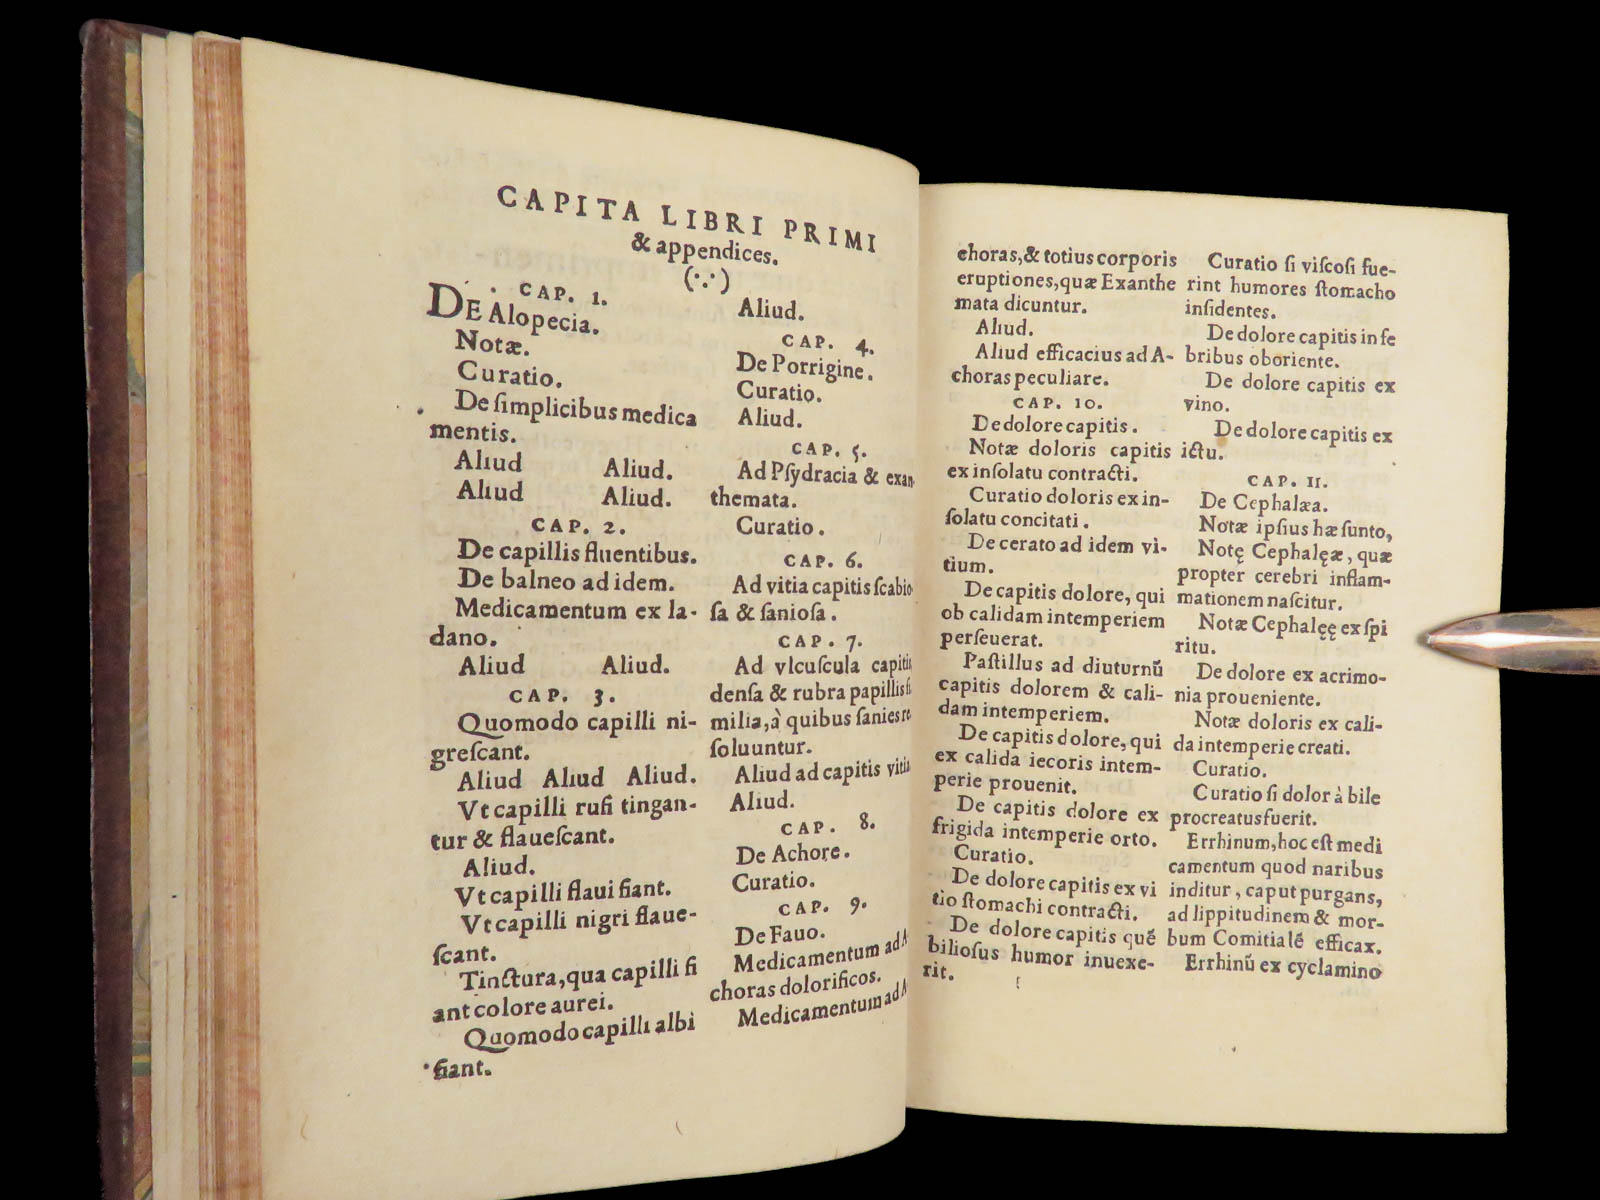 CAPITA LIBRI PRIMI
& appendices.
(∵)
CAP. 1.
DE Alopecia.
Notæ.
Curatio.
De ſimplicibus medica
mentis.
Aliud Aliud.
Aliud Aliud.
CAP. 2.
De capillis fluentibus.
De balneo ad idem.
Medicamentum ex la-
dano.
Aliud Aliud.
CAP. 3.
Quomodo capilli ni-
greſcant.
Aliud Aliud Aliud.
Vt capilli rufi tingan-
tur & flaueſcant.
Aliud.
Vt capilli flaui fiant.
Vt capilli nigri flaue-
ſcant.
Tinctura, qua capilli fi
ant colore aurei.
Quomodo capilli albi
fiant.
Aliud.
CAP. 4.
De Porrigine.
Curatio.
Aliud.
CAP. 5.
Ad Pſydracia & exan
themata.
Curatio.
CAP. 6.
Ad vitia capitis ſcabio
ſa & ſanioſa.
CAP. 7.
Ad vlcuſcula capitis
denſa & rubra papillis ſi
milia, à quibus ſanies re
ſoluuntur.
Aliud ad capitis vitia
Aliud.
CAP. 8.
De Achore.
Curatio.
CAP. 9.
De Fauo.
Medicamentum ad A
choras dolorificos.
Medicamentum ad A
choras, & totius corporis
eruptiones, quæ Exanthe
mata dicuntur.
Aliud.
Aliud efficacius ad A-
choras peculiare.
CAP. 10.
De dolore capitis.
Notæ doloris capitis
ex inſolatu contracti.
Curatio doloris ex in-
ſolatu concitati.
De cerato ad idem vi-
tium.
De capitis dolore, qui
ob calidam intemperiem
perſeuerat.
Paſtillus ad diuturnū
capitis dolorem & cali-
dam intemperiem.
De capitis dolore, qui
ex calida iecoris intem-
perie prouenit.
De capitis dolore ex
frigida intemperie orto.
Curatio.
De dolore capitis ex vi
tio ſtomachi contracti.
De dolore capitis quē
bilioſus humor inuexe-
rit.
Curatio ſi viſcoſi fue-
rint humores ſtomacho
inſidentes.
De dolore capitis in fe
bribus oboriente.
De dolore capitis ex
vino.
De dolore capitis ex
ictu.
CAP. 11.
De Cephalæa.
Notæ ipſius hæ ſunto,
Notę Cephalęæ, quæ
propter cerebri inflam-
mationem naſcitur.
Notæ Cephalęę ex ſpi
ritu.
De dolore ex acrimo-
nia proueniente.
Notæ doloris ex cali-
da intemperie creati.
Curatio.
Curatio ſi dolor à bile
procreatus fuerit.
Errhinum, hoc eſt medi
camentum quod naribus
inditur, caput purgans,
ad lippitudinem & mor-
bum Comitialē efficax.
Errhinū ex cyclamino